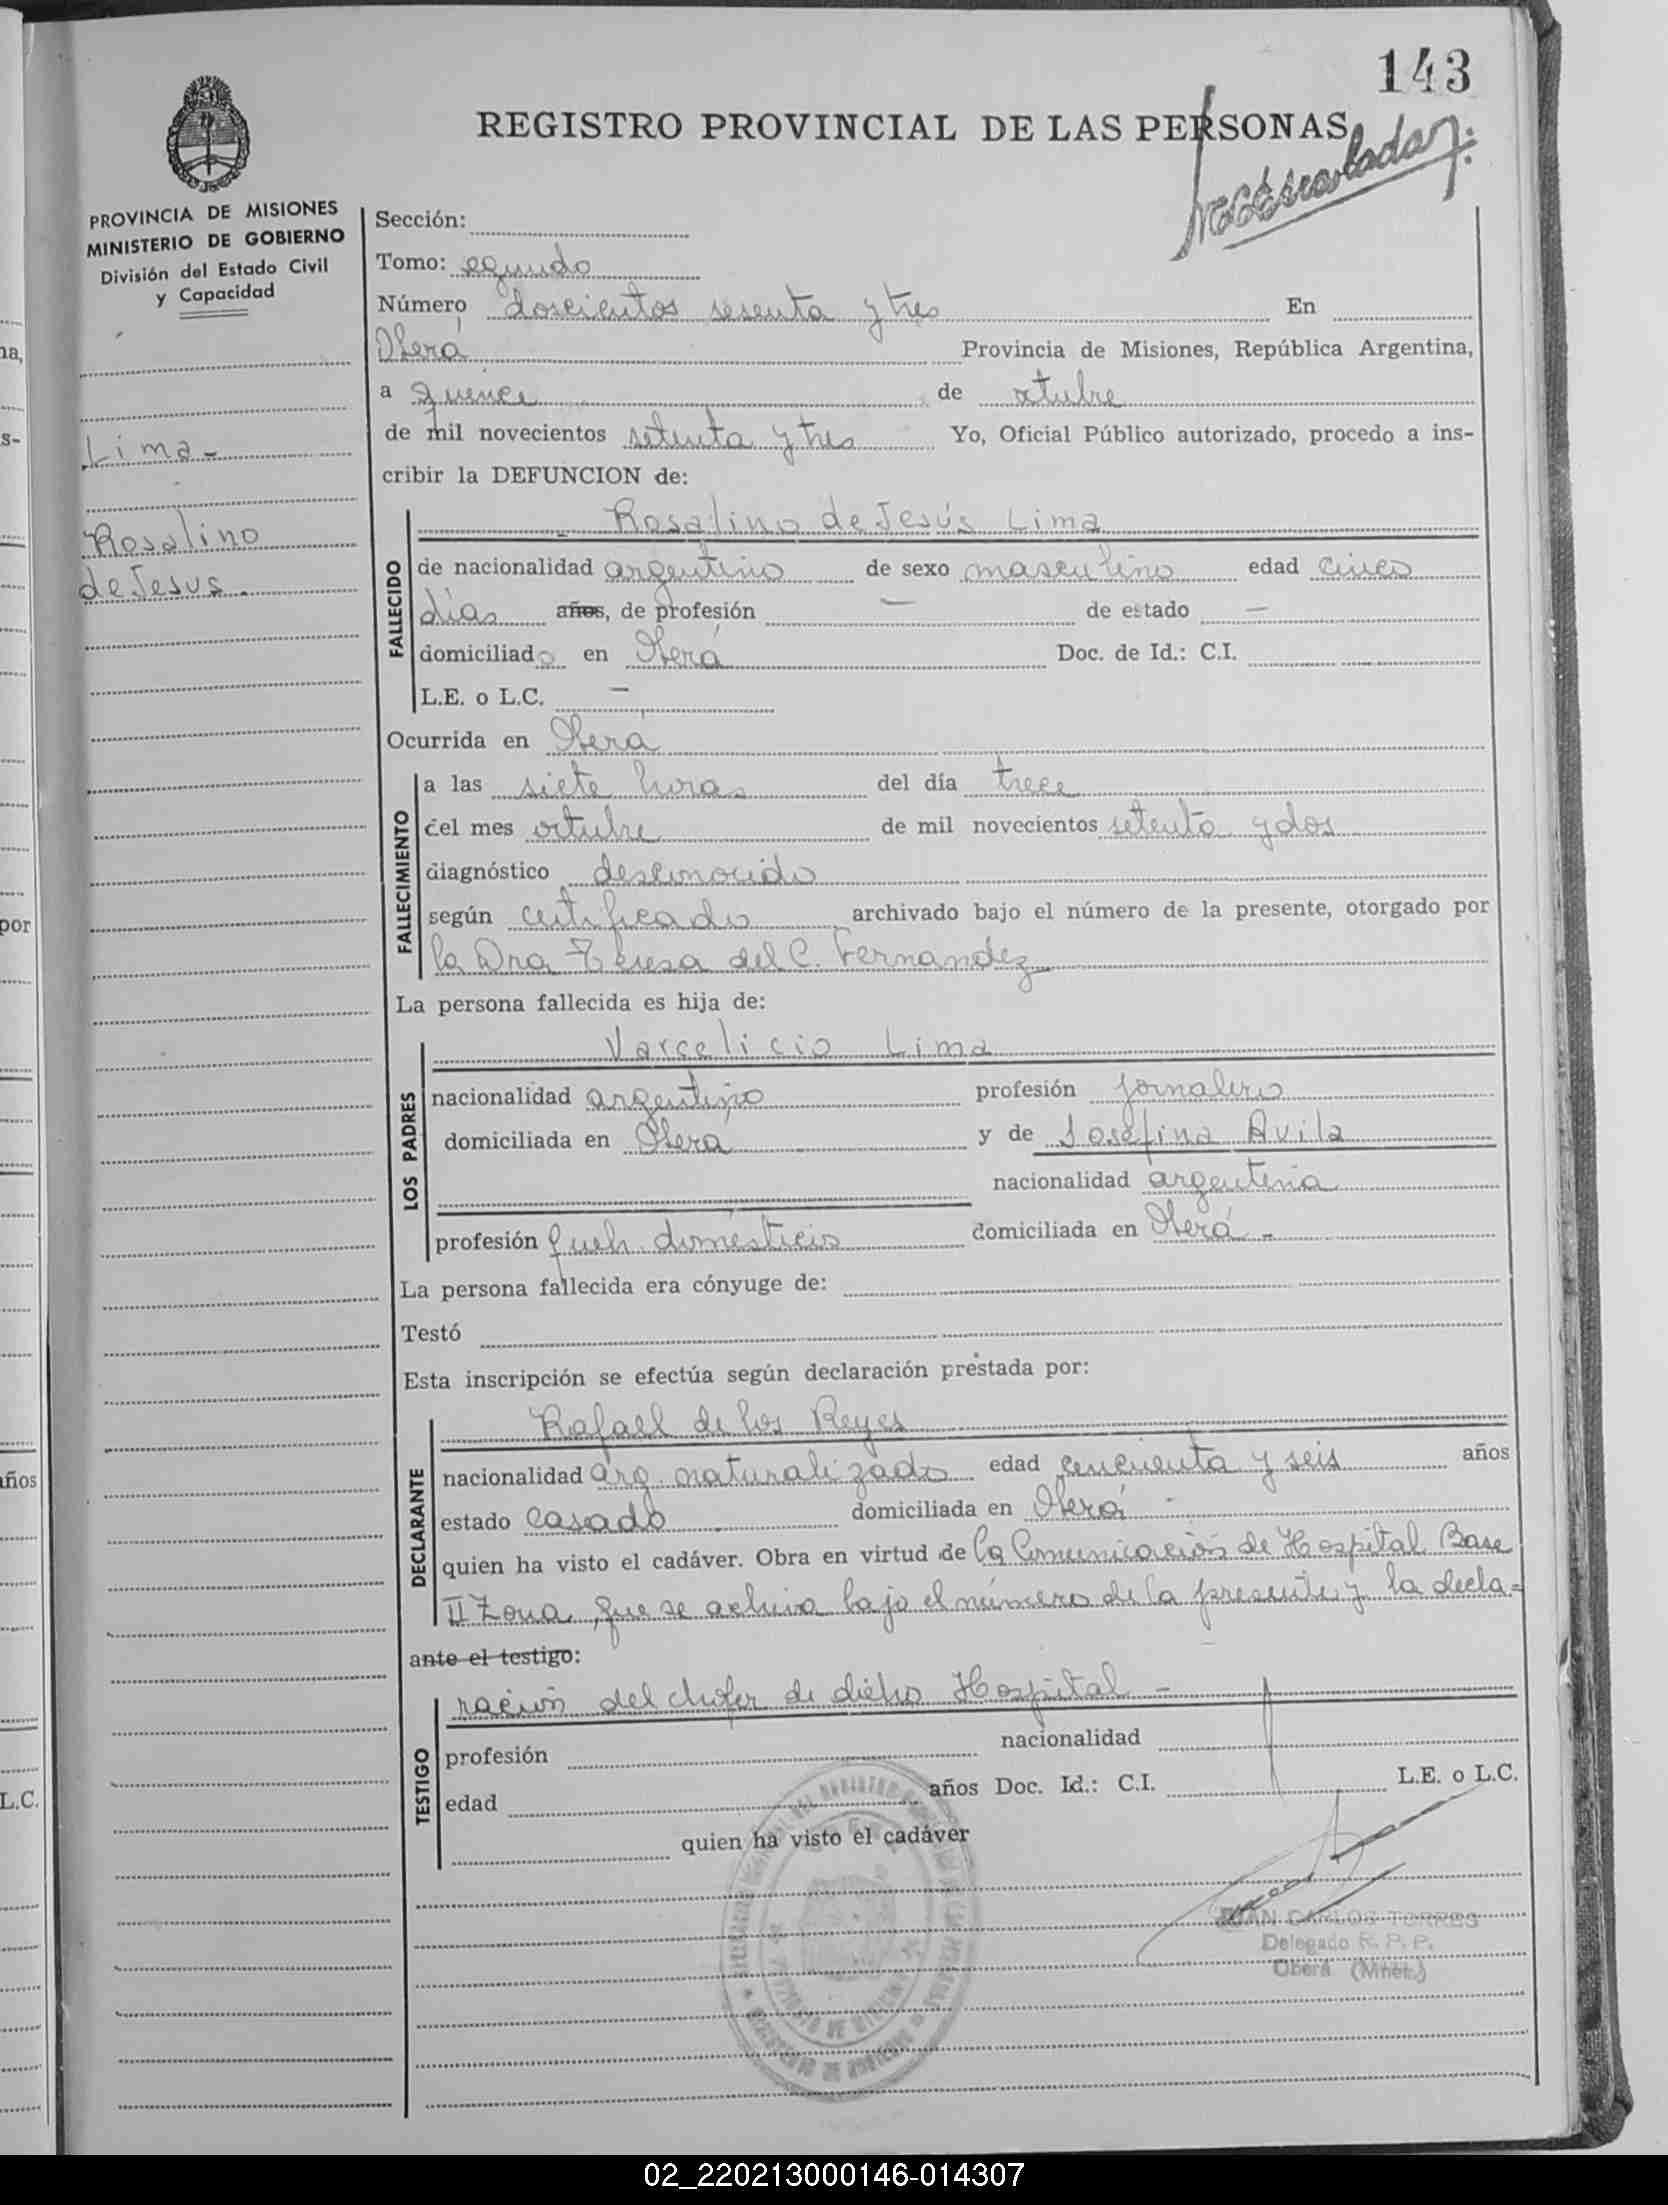 143
REGISTRO PROVINCIAL DE LAS PERSONAS
PROVINCIA DE MISIONES
MINISTERIO DE GOBIERNO
División del Estado Civil
y Capacidad
Lima-
Rosalino
de Jesus.
Sección:
Tomo: segundo
Número doscientos sesenta y tres En
Oberá Provincia de Misiones, República Argentina,
a quince de octubre
de mil novecientos setenta y tres Yo, Oficial Público autorizado, procedo a ins-
cribir la DEFUNCION de:
Rosalino de Jesús Lima
FALLECIDO
de nacionalidad argentino de sexo masculino edad cinco
días años, de profesión — de estado —
domiciliado en Oberá Doc. de Id.: C.I.
L.E. o L.C. —
Ocurrida en Oberá
FALLECIMIENTO
a las siete horas del día trece
del mes octubre de mil novecientos setenta y dos
diagnóstico desconocido
según certificado archivado bajo el número de la presente, otorgado por
la Dra Teresa del C. Fernandez
La persona fallecida es hija de:
LOS PADRES
Varcelicio Lima
nacionalidad argentino profesión jornalero
domiciliada en Oberá y de Josefina Avila
nacionalidad argentina
profesión queh. domésticos domiciliada en Oberá -
La persona fallecida era cónyuge de:
Testó
Esta inscripción se efectúa según declaración prestada por:
DECLARANTE
Rafael de los Reyes
nacionalidad arg. naturalizado edad cincuenta y seis años
estado casado domiciliada en Oberá
quien ha visto el cadáver. Obra en virtud de la Comunicación de Hospital Base
II Zona, que se archiva bajo el número de la presente y la decla-
ante el testigo:
TESTIGO
ración del chofer de dicho Hospital -
profesión nacionalidad
edad años Doc. Id.: C.I. L.E. o L.C.
quien ha visto el cadáver
JUAN CARLOS TORRES
Delegado R. P. P.
Oberá (Mnes.)
02_220213000146-014307